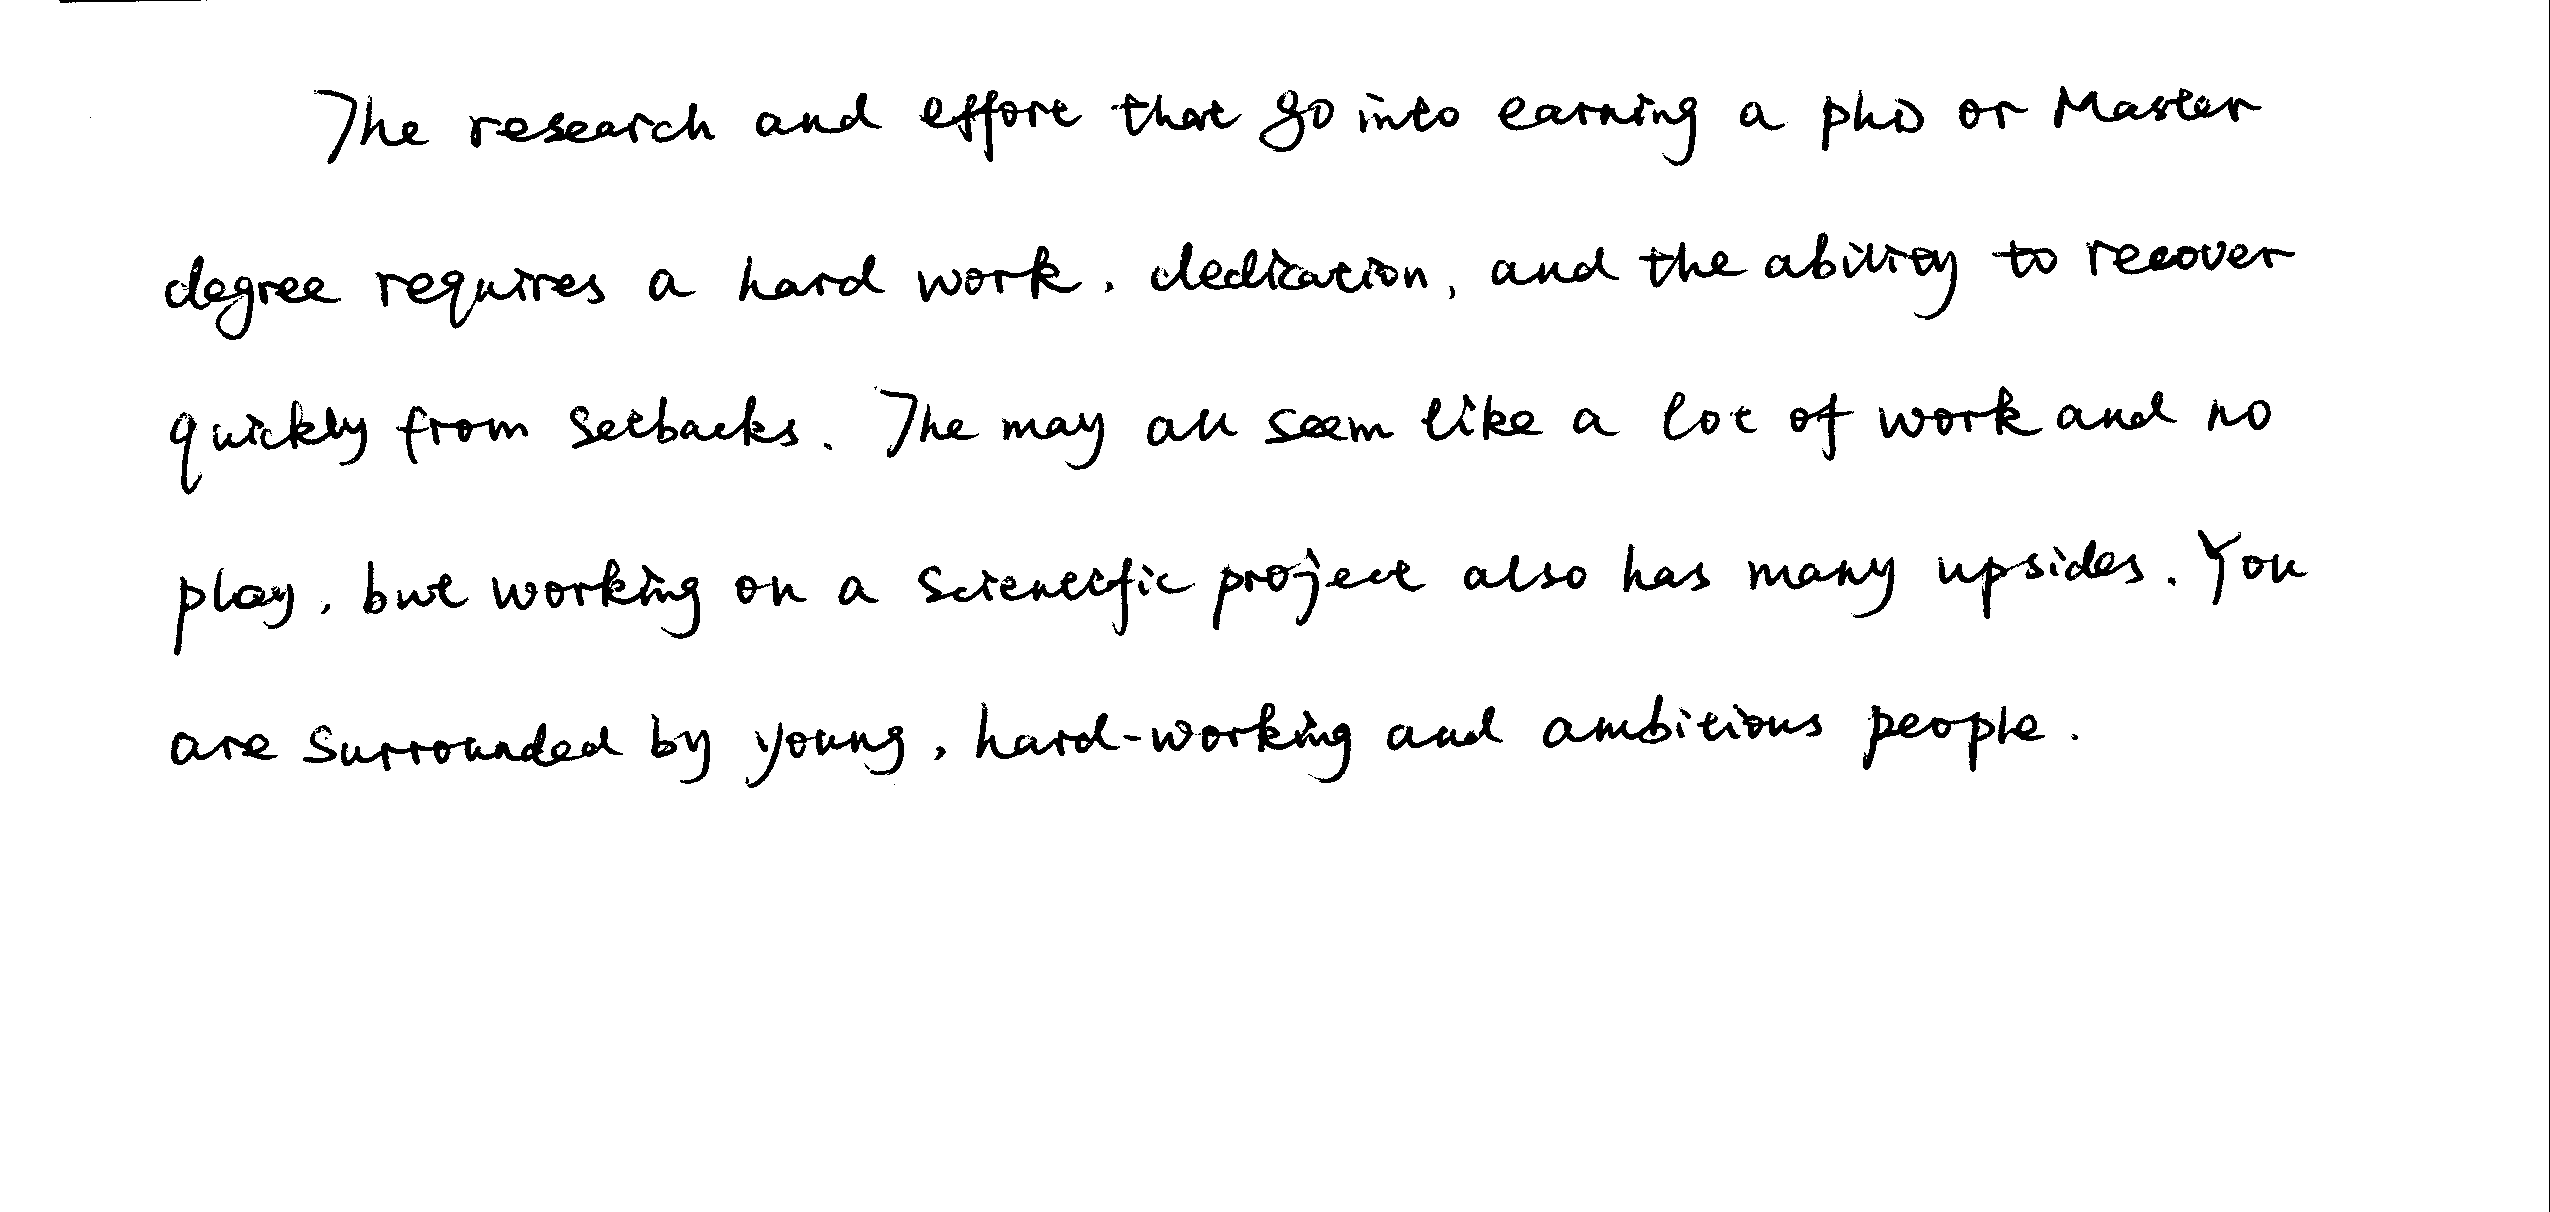 The research and effort that go into earning a phD or Master
degree requires a hard work, dedication, and the ability to recover
quickly from setbacks. The may all seem like a lot of work and no
play, but working on a scientific project also has many upsides. You
are surrounded by young, hard-working and ambitious people.